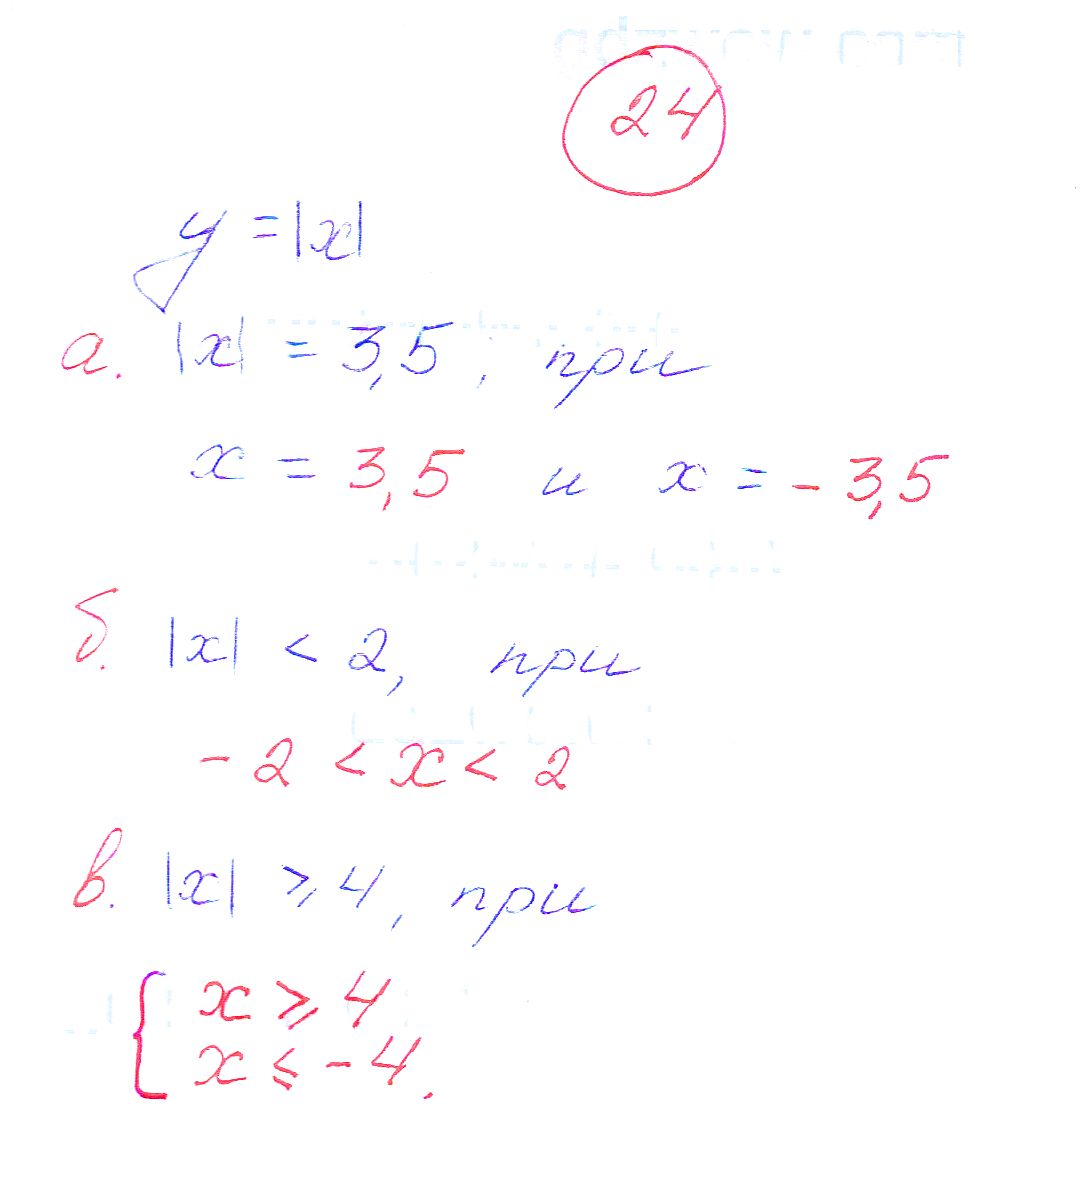 24
y = |x|
а. |x| = 3,5, при
x = 3,5 и x = - 3,5
б. |x| < 2, при
- 2 < x < 2
в. |x| ⩾ 4, при
{ x ⩾ 4
x ⩽ - 4.